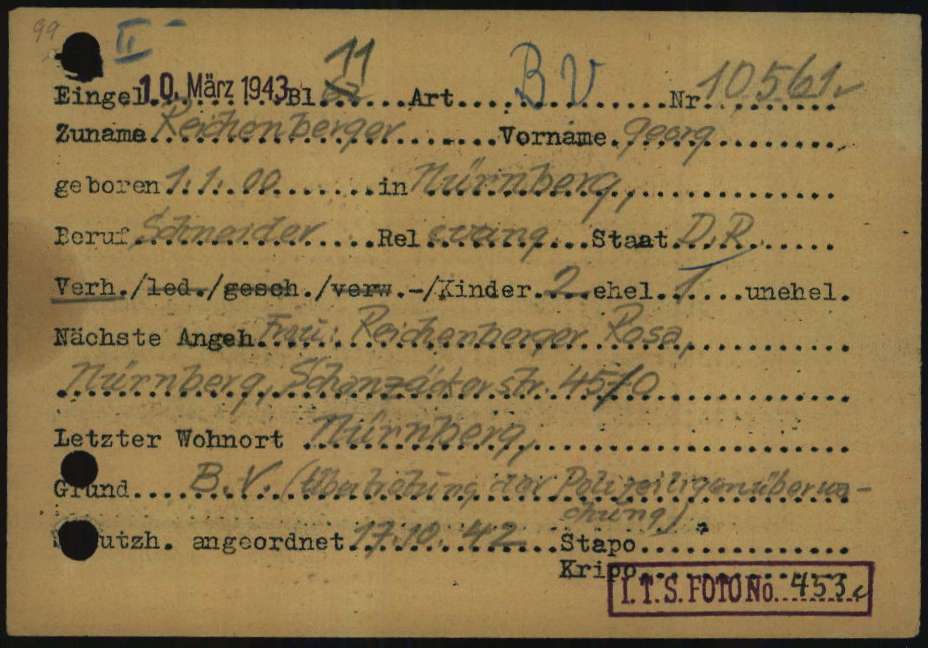 99 II
Eingel. 10. März 1943 Bl. 11 Art. BV Nr. 10561
Zuname Reichenberger Vorname Georg
geboren 1.1.00 in Nürnberg,
Beruf Schneider Rel evang. Staat D.R.
Verh./led./gesch./verw.-/Kinder 2 ehel. 1 unehel.
Nächste Angeh. Frau: Reichenberger Rosa,
Nürnberg, Schanzäckerstr. 45/0
Letzter Wohnort Nürnberg,
Grund B.V. (Übertretung der Polizeiligenüberwa-
chung)
Schutzh. angeordnet 17.10.42 Stapo
Kripo
I.T.S. FOTO No. 453